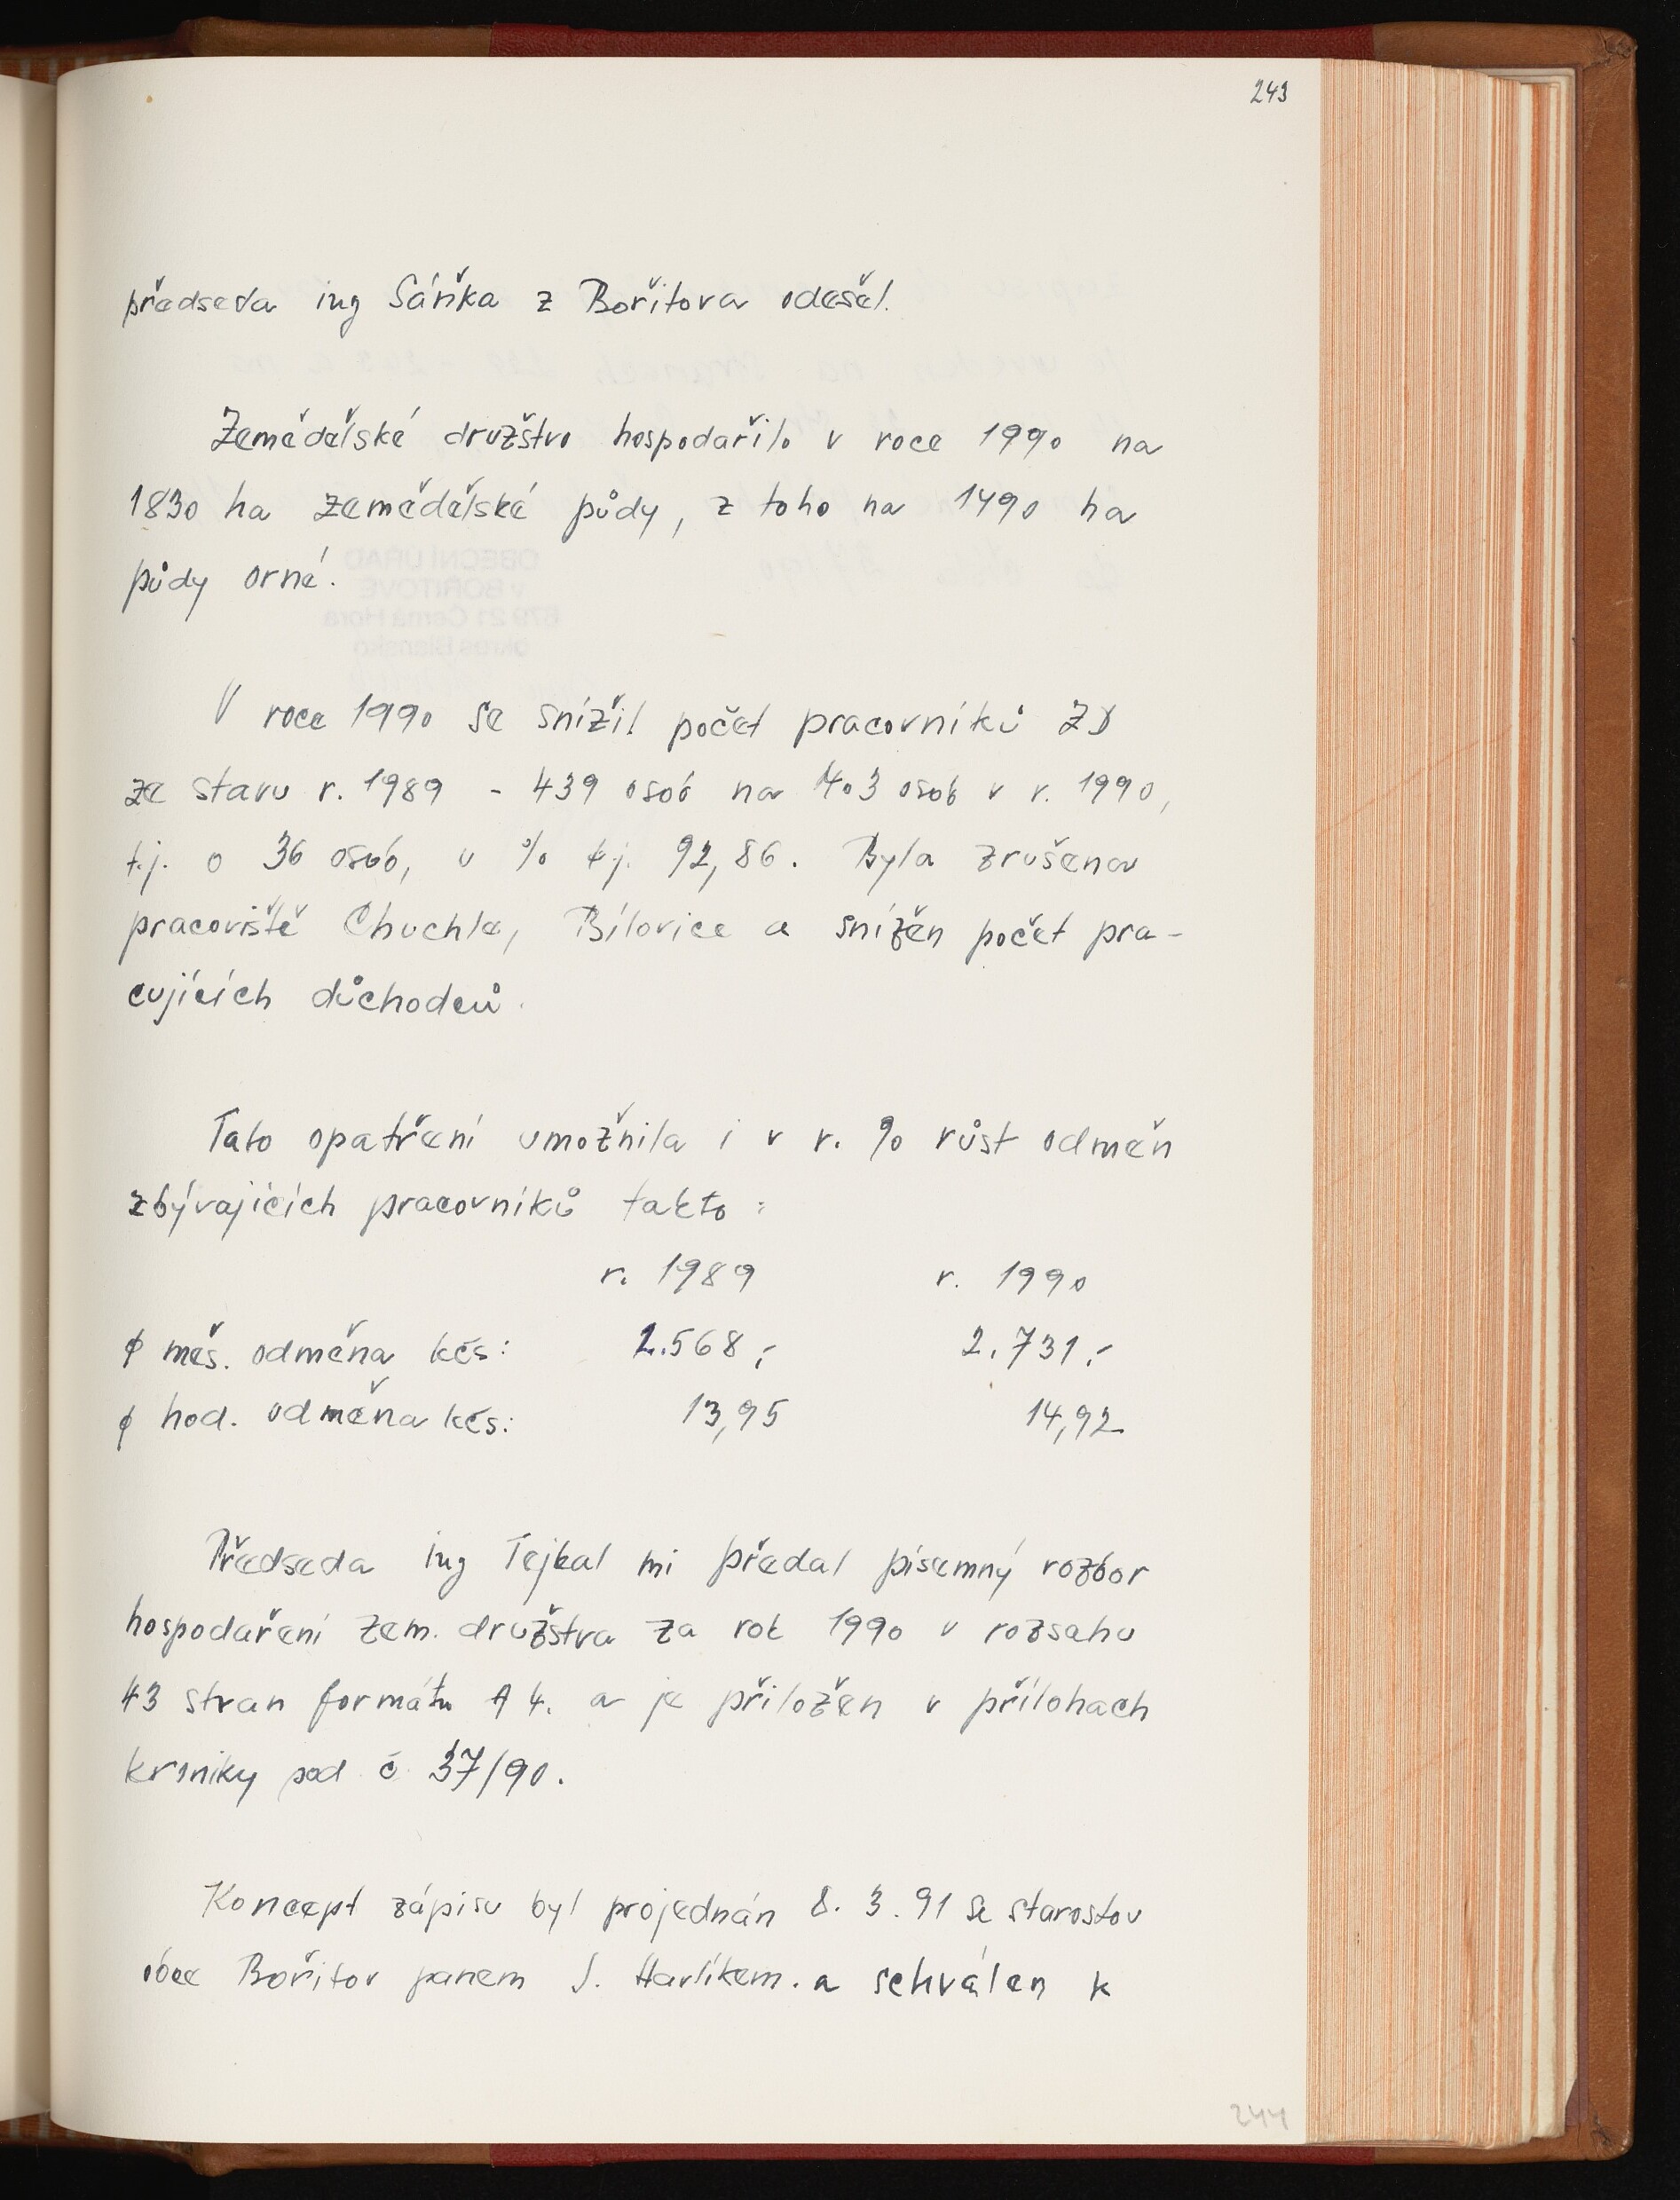 243
předseda ing Sáňka z Bořitova odešel.
Zemědělské družstvo hospodařilo v roce 1990 na
1830 ha zemědělské půdy, z toho na 1490 ha
půdy orné.
V roce 1990 se snížil počet pracovníků ZD
ze stavu r. 1989 - 439 osob na 403 osob v r. 1990,
t.j. o 36 osob, v % t.j. 92,86. Byla zrušena
pracoviště Chuchle, Bílovice a snížen počet pra-
cujících důchodců.
Tato opatření umožnila i v r. 90 růst odměn
zbývajících pracovníků takto:
r. 1989 r. 1990
φ měs. odměna kčs: 2.568,- 2.731,-
φ hod. odměna kčs: 13,95 14,92
Předseda ing Tejkal mi předal písemný rozbor
hospodaření zem. družstva za rok 1990 v rozsahu
43 stran formátu A4. a je přiložen v přílohach
kroniky pod č 37/90.
Koncept zápisu byl projednán 8. 3. 91 se starostou
obce Bořitov panem J. Havlíkem. a schválen k
244